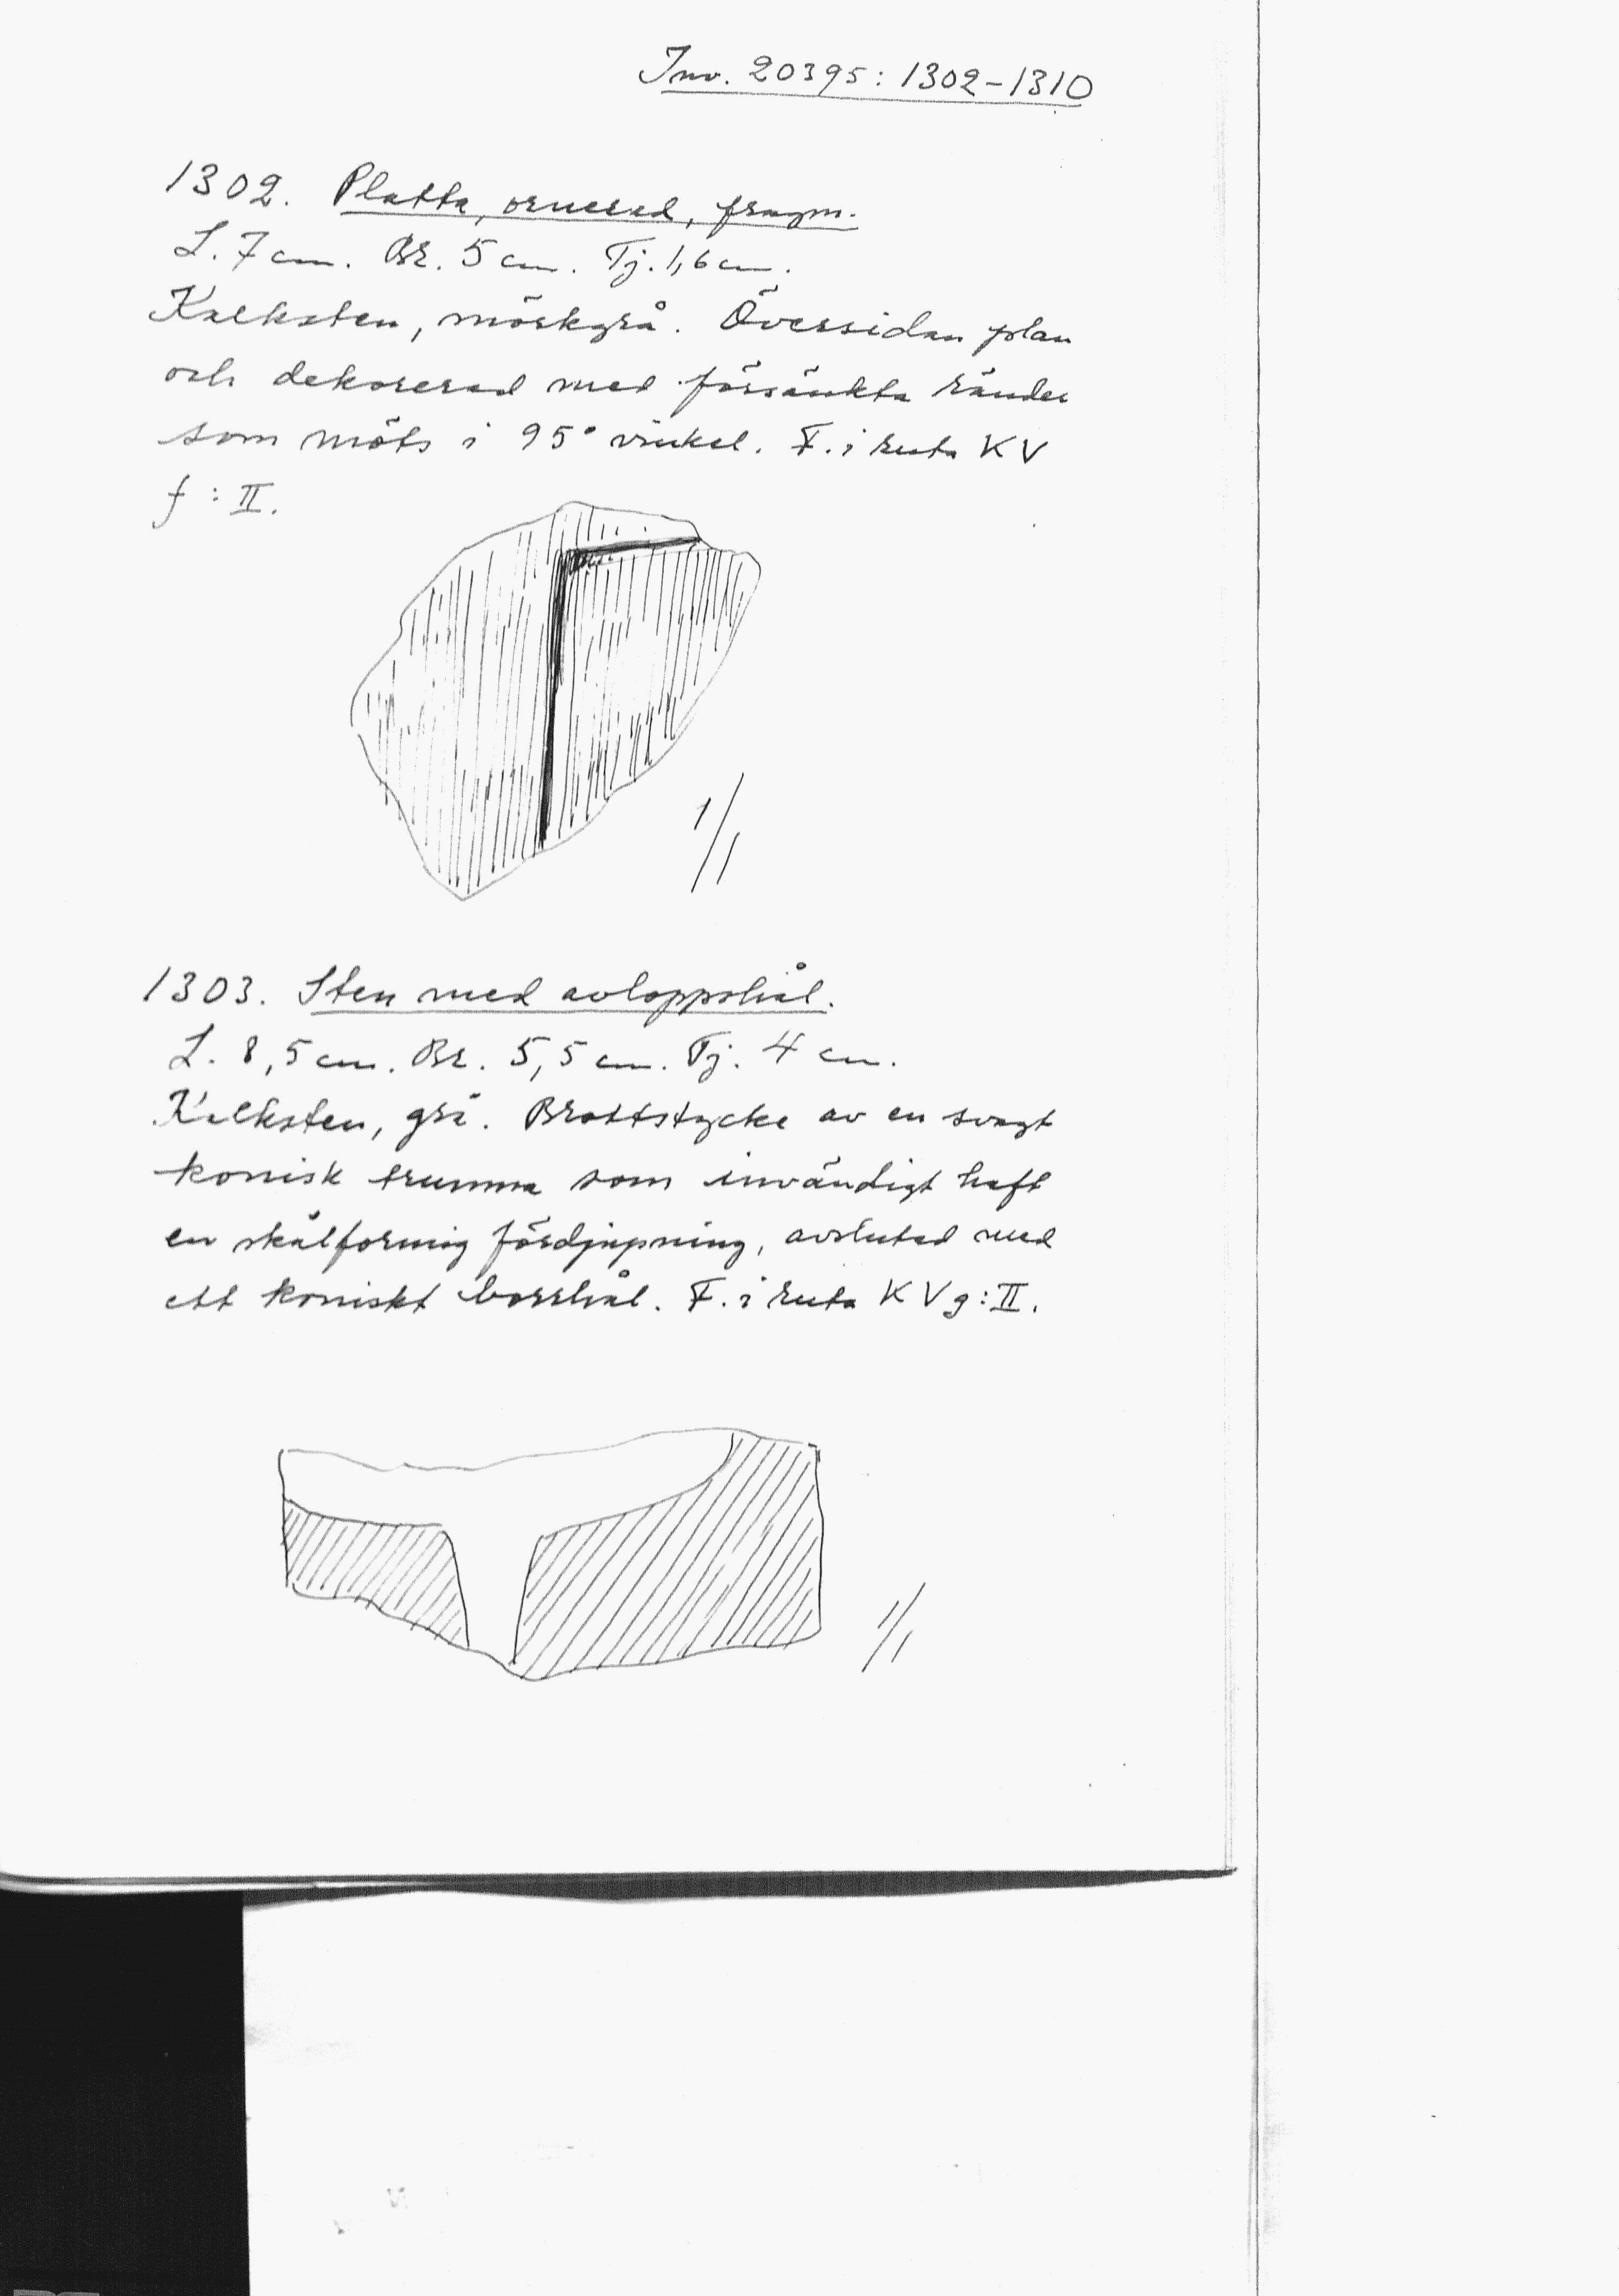 Inv. 20395:1302-1310
1302. Platta, ornerad, fragm.
L. 7 cm. Br. 5 cm. Tj. 1,6 cm.
Kalksten, mörkgrå. Översidan plan
och dekorerad med försänkta ränder
som möts i 95° vinkel. F. i ruta KV
f:II.
1/1
1303. Sten med avloppshål.
L. 8,5 cm. Br. 5,5 cm. Tj. 4 cm.
Kalksten, grå. Brottstycke av en svagt
konisk trumma som invändigt haft
en skålformig fördjupning, avslutad med
ett koniskt borrhål. F. i ruta KV g:II.
1/1